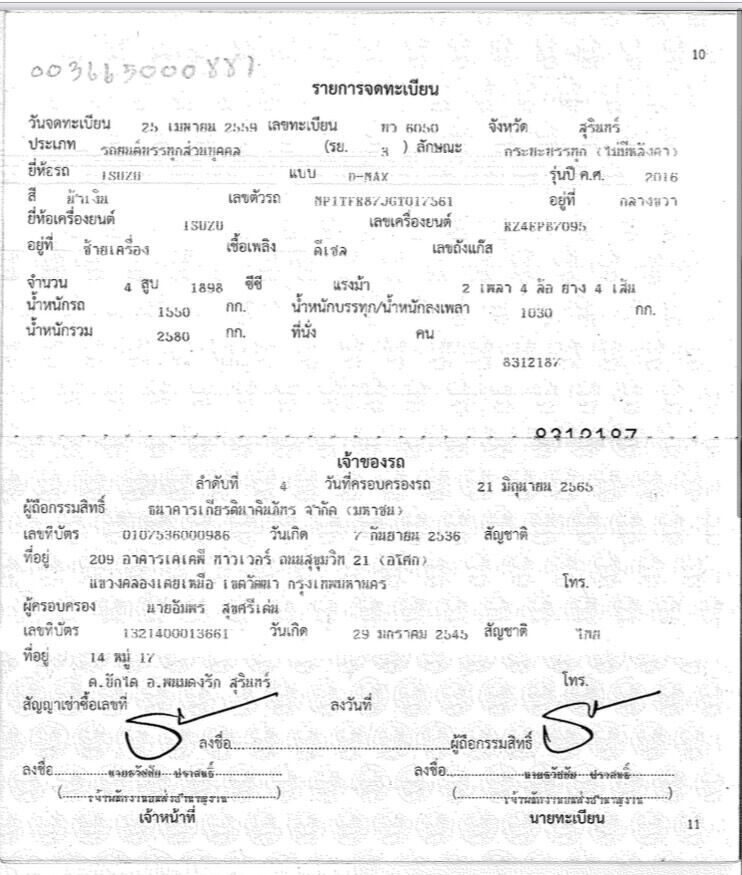 10
003665000887
รายการจดทะเบียน
วันจดทะเบียน 25 เมษายน 2559 เลขทะเบียน 6050 จังหวัด สุรินทร์
ประเภท รถยนต์บรรทุกส่วนบุคคล (รย. 3 ) ลักษณะ กระบะบรรทุก (ไม่มีหลังคา)
ยี่ห้อรถ ISUZU แบบ D-MAX รุ่นปี ค.ศ. 2016
สี น้ำเงิน เลขตัวรถ MP1TFR87JGT017561 อยู่ที่ กลางขวา
ยี่ห้อเครื่องยนต์ ISUZU เลขเครื่องยนต์ RZ4EPB7095
อยู่ที่ ซ้ายเครื่อง เชื้อเพลิง ดีเซล เลขถังแก๊ส
จำนวน 4 สูบ 1898 ซีซี แรงม้า 2 เพลา 4 ล้อ ยาง 4 เส้น
น้ำหนักรถ 1550 กก. น้ำหนักบรรทุก/น้ำหนักลงเพลา 1030 กก.
น้ำหนักรวม 2580 กก. ที่นั่ง คน
8312187
เจ้าของรถ
ลำดับที่ 4 วันที่ครอบครองรถ 21 มิถุนายน 2565
ผู้ถือกรรมสิทธิ์ ธนาคารเกียรตินาคินภัทร จำกัด (มหาชน)
เลขที่บัตร 0107536000986 วันเกิด 7 กันยายน 2536 สัญชาติ
ที่อยู่ 209 อาคารเคเคพี ทาวเวอร์ ถนนสุขุมวิท 21 (อโศก)
แขวงคลองเตยเหนือ เขตวัฒนา กรุงเทพมหานคร โทร.
ผู้ครอบครอง นายอัมพร สุขศรีเด่น
เลขที่บัตร 1321400013661 วันเกิด 29 มกราคม 2545 สัญชาติ ไทย
ที่อยู่ 14 หมู่ 17
ต.บักได อ.พนมดงรัก สุรินทร์ โทร.
สัญญาเช่าซื้อเลขที่ ลงวันที่
ลงชื่อ ผู้ถือกรรมสิทธิ์
ลงชื่อ นายธวัชชัย ปราสนธิ์ ลงชื่อ นายธวัชชัย ปราสนธิ์
(เจ้าพนักงานขนส่งชำนาญงาน) (เจ้าพนักงานขนส่งชำนาญงาน)
เจ้าหน้าที่ นายทะเบียน
11